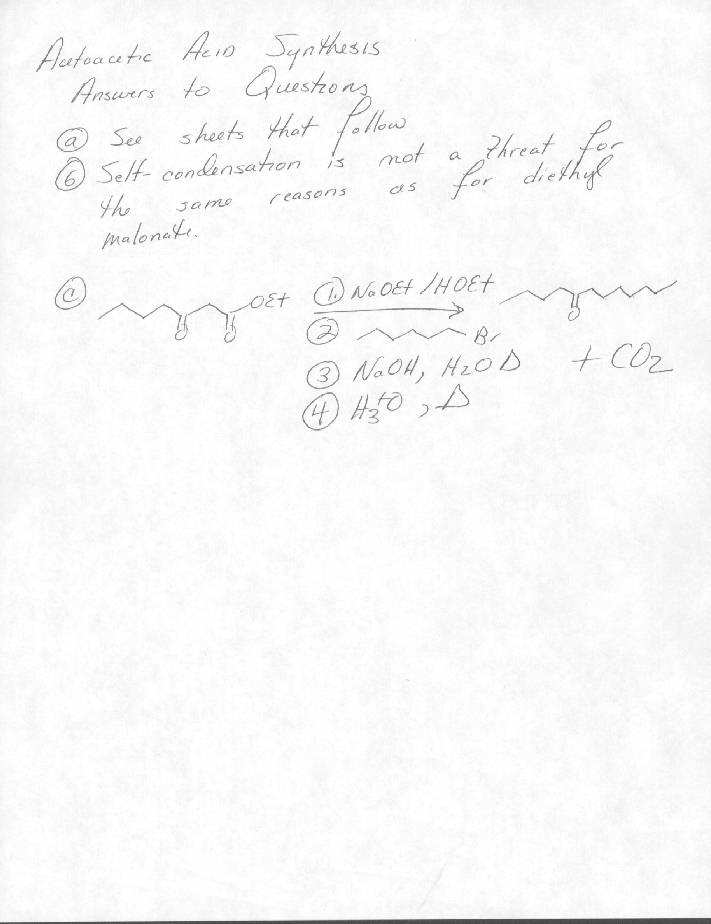 Acetoacetic Acid Synthesis
Answers to Questions
(a) See sheets that follow
(b) Self-condensation is not a threat for
the same reasons as for diethyl
malonate.
(c) OEt O O (1) NaOEt / HOEt O
(2) Br
(3) NaOH, H2O Δ + CO2
(4) H3+O, Δ